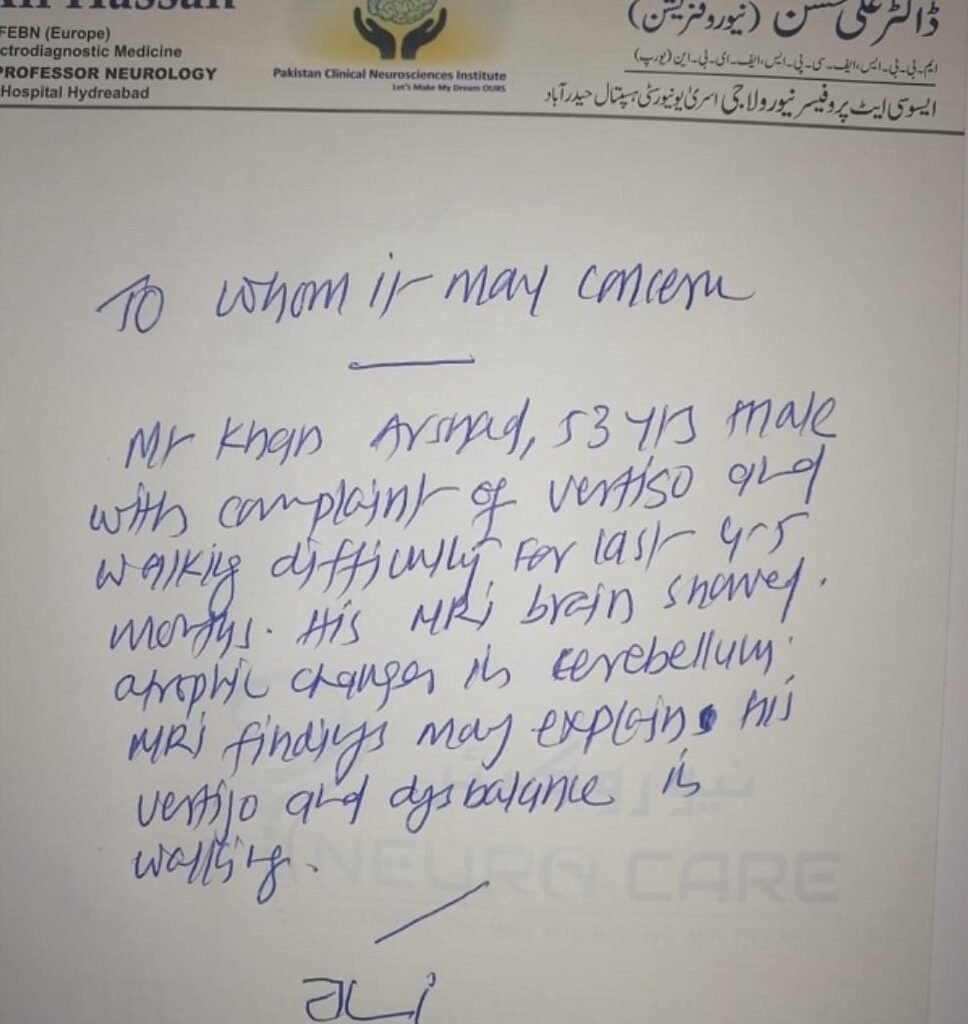 Ali Hassan
FEBN (Europe)
ctrodiagnostic Medicine
PROFESSOR NEUROLOGY
Hospital Hydreabad
Pakistan Clinical Neurosciences Institute
Let's Make My Dream OURS
ڈاکٹر علی حسن (نیوروفزیشن)
ایم-بی-بی-ایس، ایف-سی-پی-ایس، ایف-ای-بی-این (یورپ)
ایسوسی ایٹ پروفیسر نیورولاجی اسریٰ یونیورسٹی ہسپتال حیدرآباد
To whom it may concern
Mr Khan Arshad, 53 yrs male
with complaint of vertigo and
walking difficulty for last 4-5
months. His MRI brain showed.
atrophic changes in cerebellum.
MRI findings may explain his
vertigo and dysbalance in
walking.
نیورو
NEURO CARE
Ali